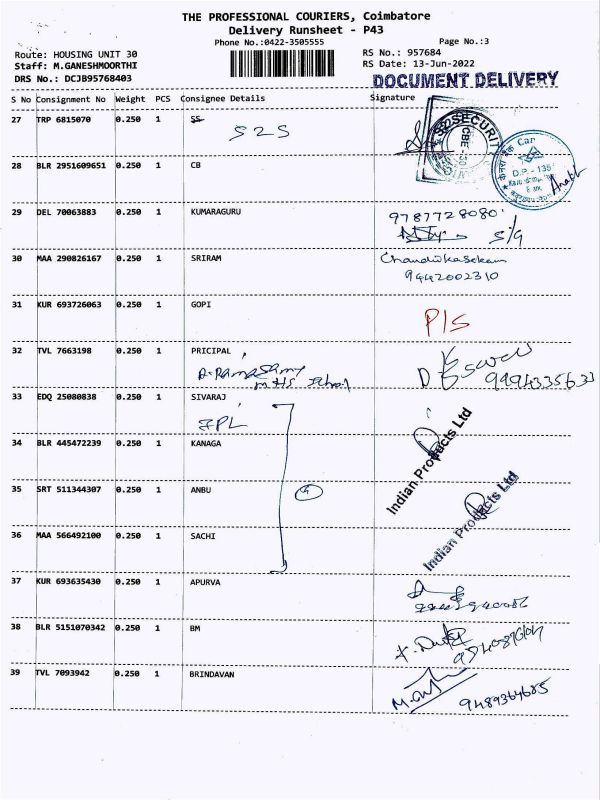 THE PROFESSIONAL COURIERS, Coimbatore
Delivery Runsheet - P43
Phone No.:0422-3505555
Page No.:3
Route: HOUSING UNIT 30
RS No.: 957684
Staff: M.GANESHMOORTHI
RS Date: 13-Jun-2022
DRS No.: DCJB95768403
DOCUMENT DELIVERY
S No Consignment No Weight PCS Consignee Details Signature
27 TRP 6815070 0.250 1 SS
S2S
SECURIT
CBE-30
28 BLR 2951609651 0.250 1 CB
D.P. - 135
29 DEL 70063883 0.250 1 KUMARAGURU
9787728080
S/G
30 MAA 290826167 0.250 1 SRIRAM
Chandrikasekam
9442002310
31 KUR 693726063 0.250 1 GOPI
P/S
32 TVL 7663198 0.250 1 PRICIPAL
D. Ramasamy
M HS School
9494335633
33 EDQ 25080838 0.250 1 SIVARAJ
IPL
Indian Products Ltd
34 BLR 445472239 0.250 1 KANAGA
35 SRT 511344307 0.250 1 ANBU
4
Indian Products Ltd
36 MAA 566492100 0.250 1 SACHI
37 KUR 693635430 0.250 1 APURVA
38 BLR 5151070342 0.250 1 BM
39 TVL 7093942 0.250 1 BRINDAVAN
9489364685